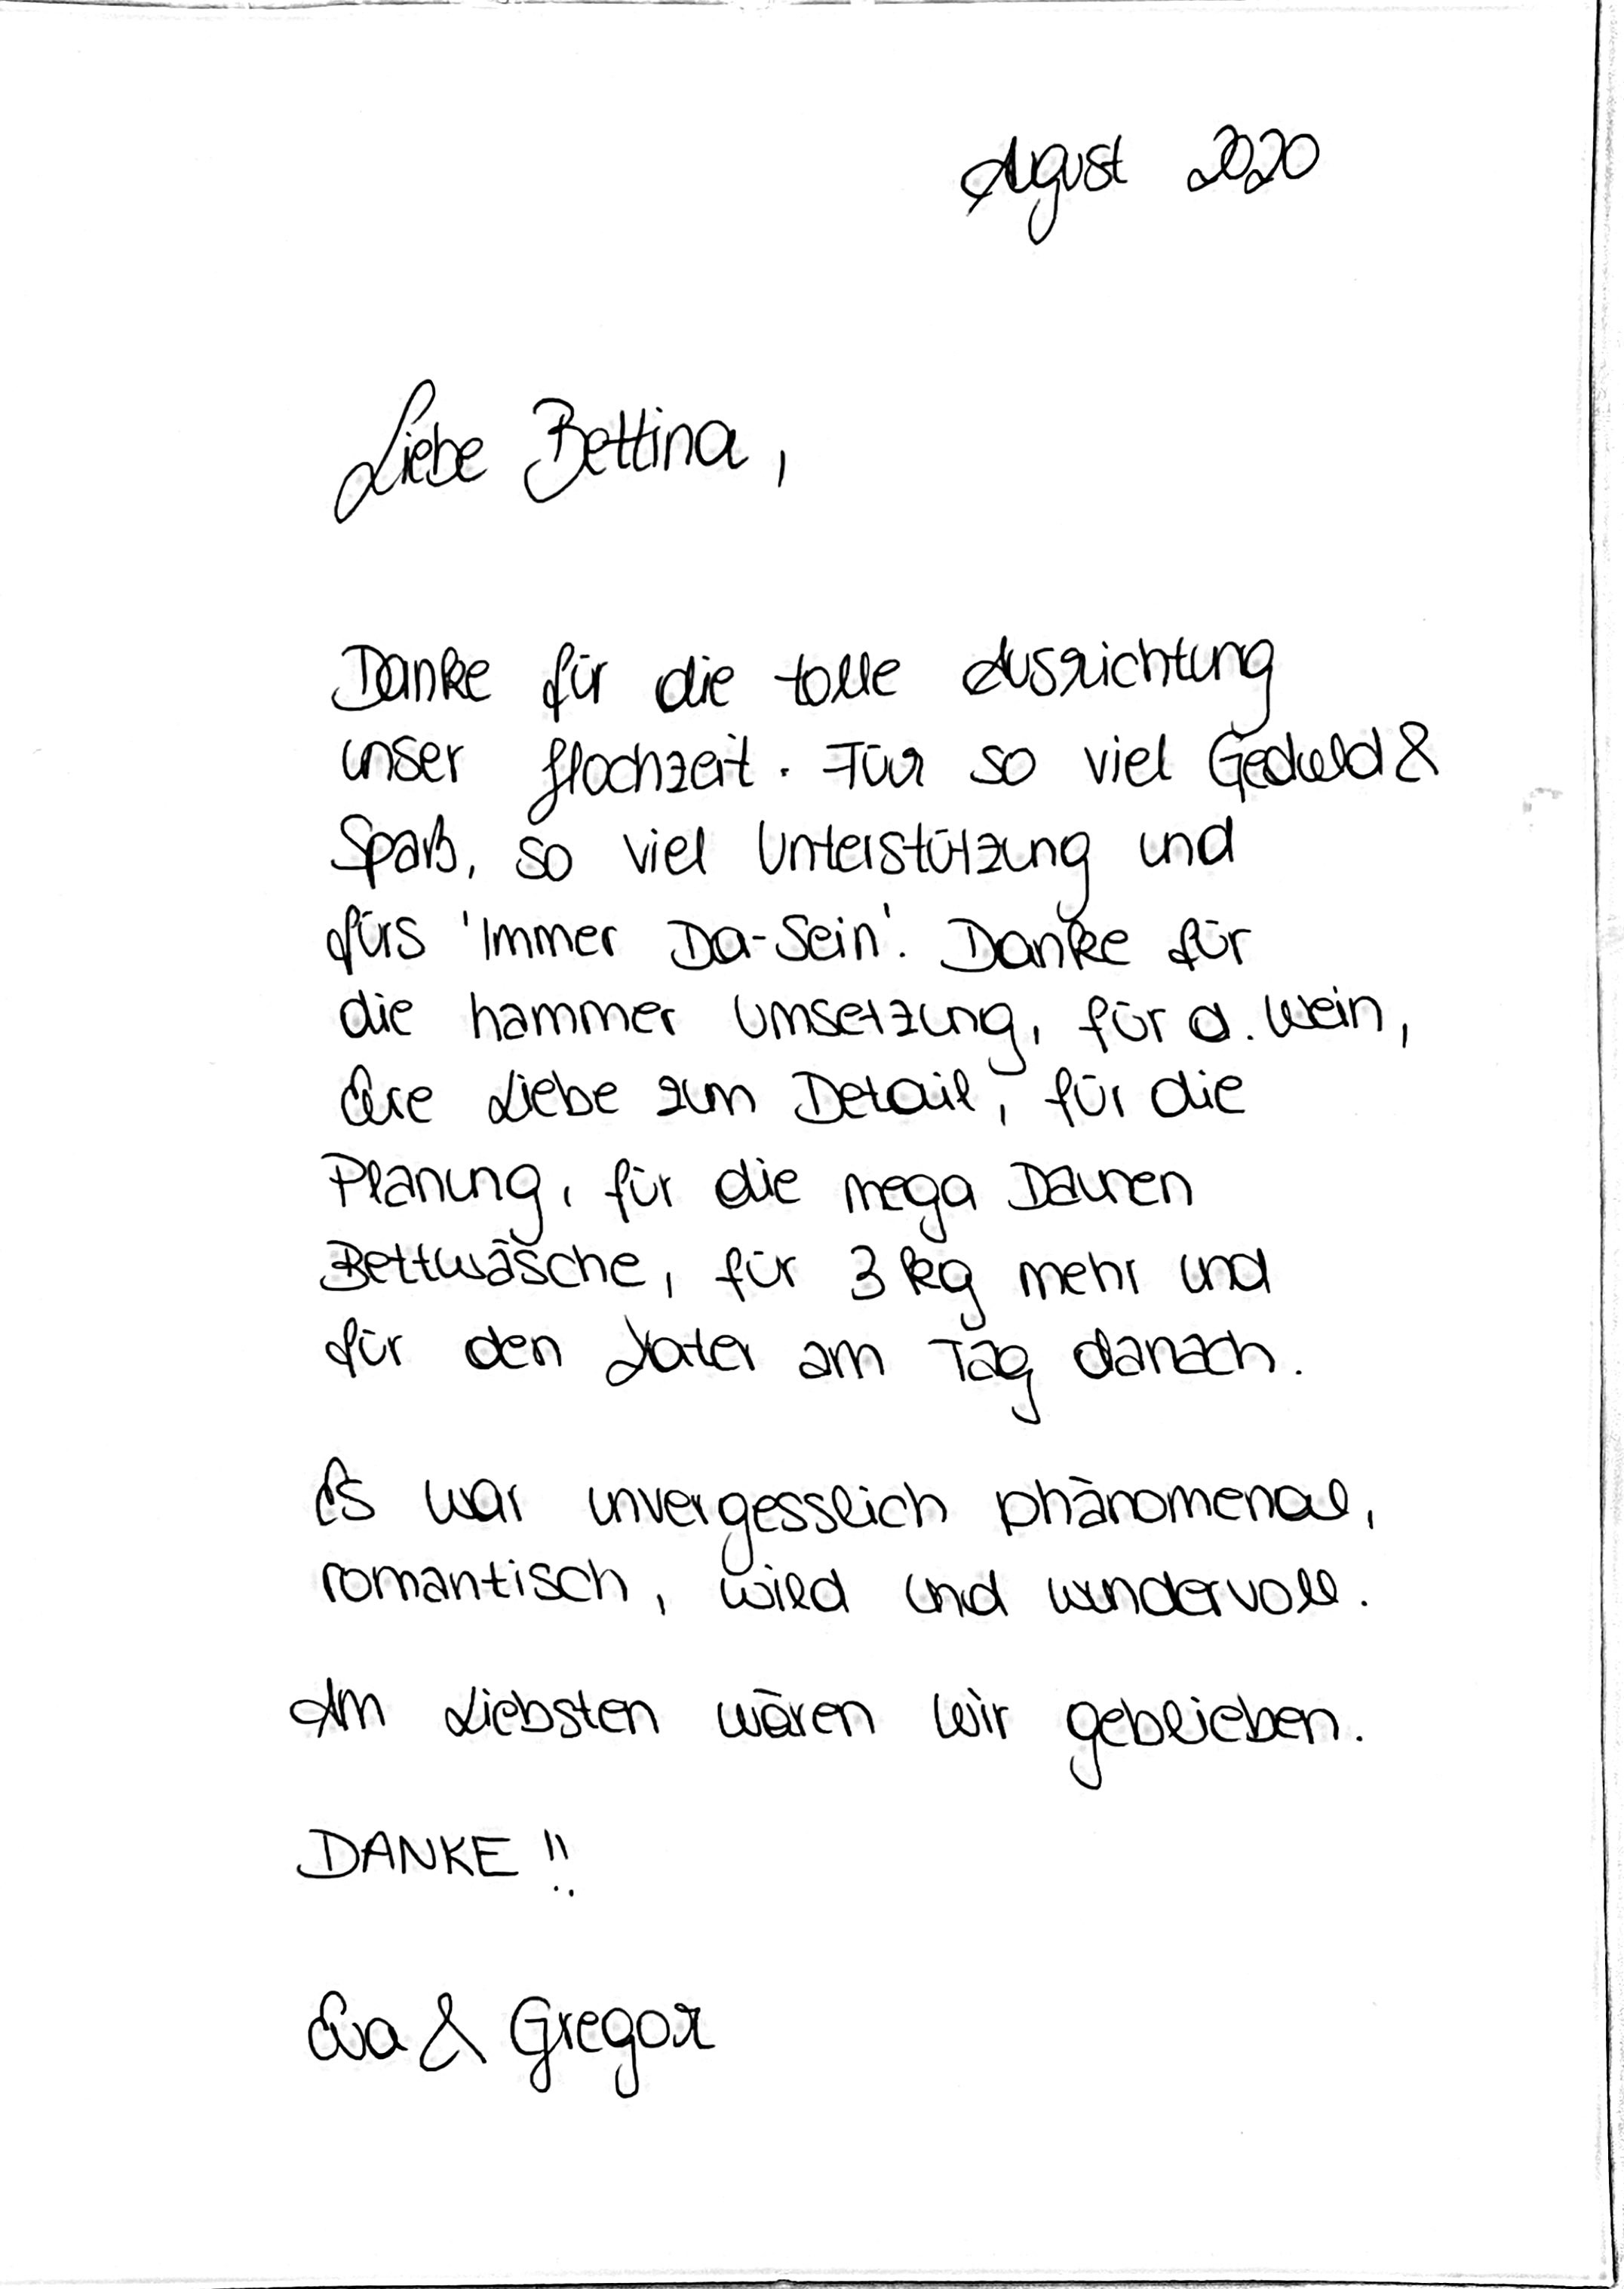 August 2020
Liebe Bettina,
Danke für die tolle Ausrichtung
unser Hochzeit. Für so viel Geduld &
Spaß, so viel Unterstützung und
fürs 'Immer Da-Sein'. Danke für
die hammer Umsetzung, für d. Wein,
Eure Liebe zum Detail, für die
Planung, für die mega Daunen
Bettwäsche, für 3 kg mehr und
für den Kater am Tag danach.
Es war unvergesslich phänomenal,
romantisch, wild und wundervoll.
Am Liebsten wären wir geblieben.
DANKE !!
Eva & Gregor